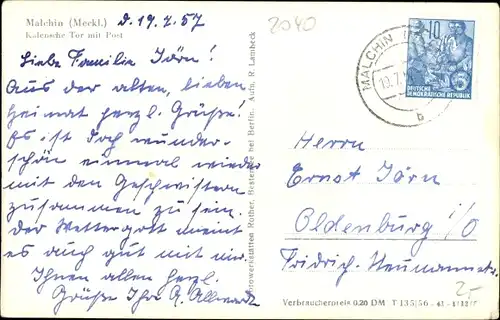 Malchin (Meckl.)
Kalensche Tor mit Post
D. 19.7.57
2040
Liebe Familie Jörn!
Aus der alten, lieben
Heimat herzl. Grüße!
Es ist doch wunder-
schön einmal wieder
mit den Geschwistern
zusammen zu sein.
Der Wettergott meint
es auch gut mit mir.
Ihnen allen herzl.
Grüße Ihr A. Allwardt
bei Berlin. Aufn. R. Lambeck
MALCHIN
b
10
DEUTSCHE
DEMOKRATISCHE REPUBLIK
Herrn
Ernst Jörn
Oldenburg i/O
Fridrich-Neumannstr.
2,-
Verbraucherpreis 0.20 DM T 135|56